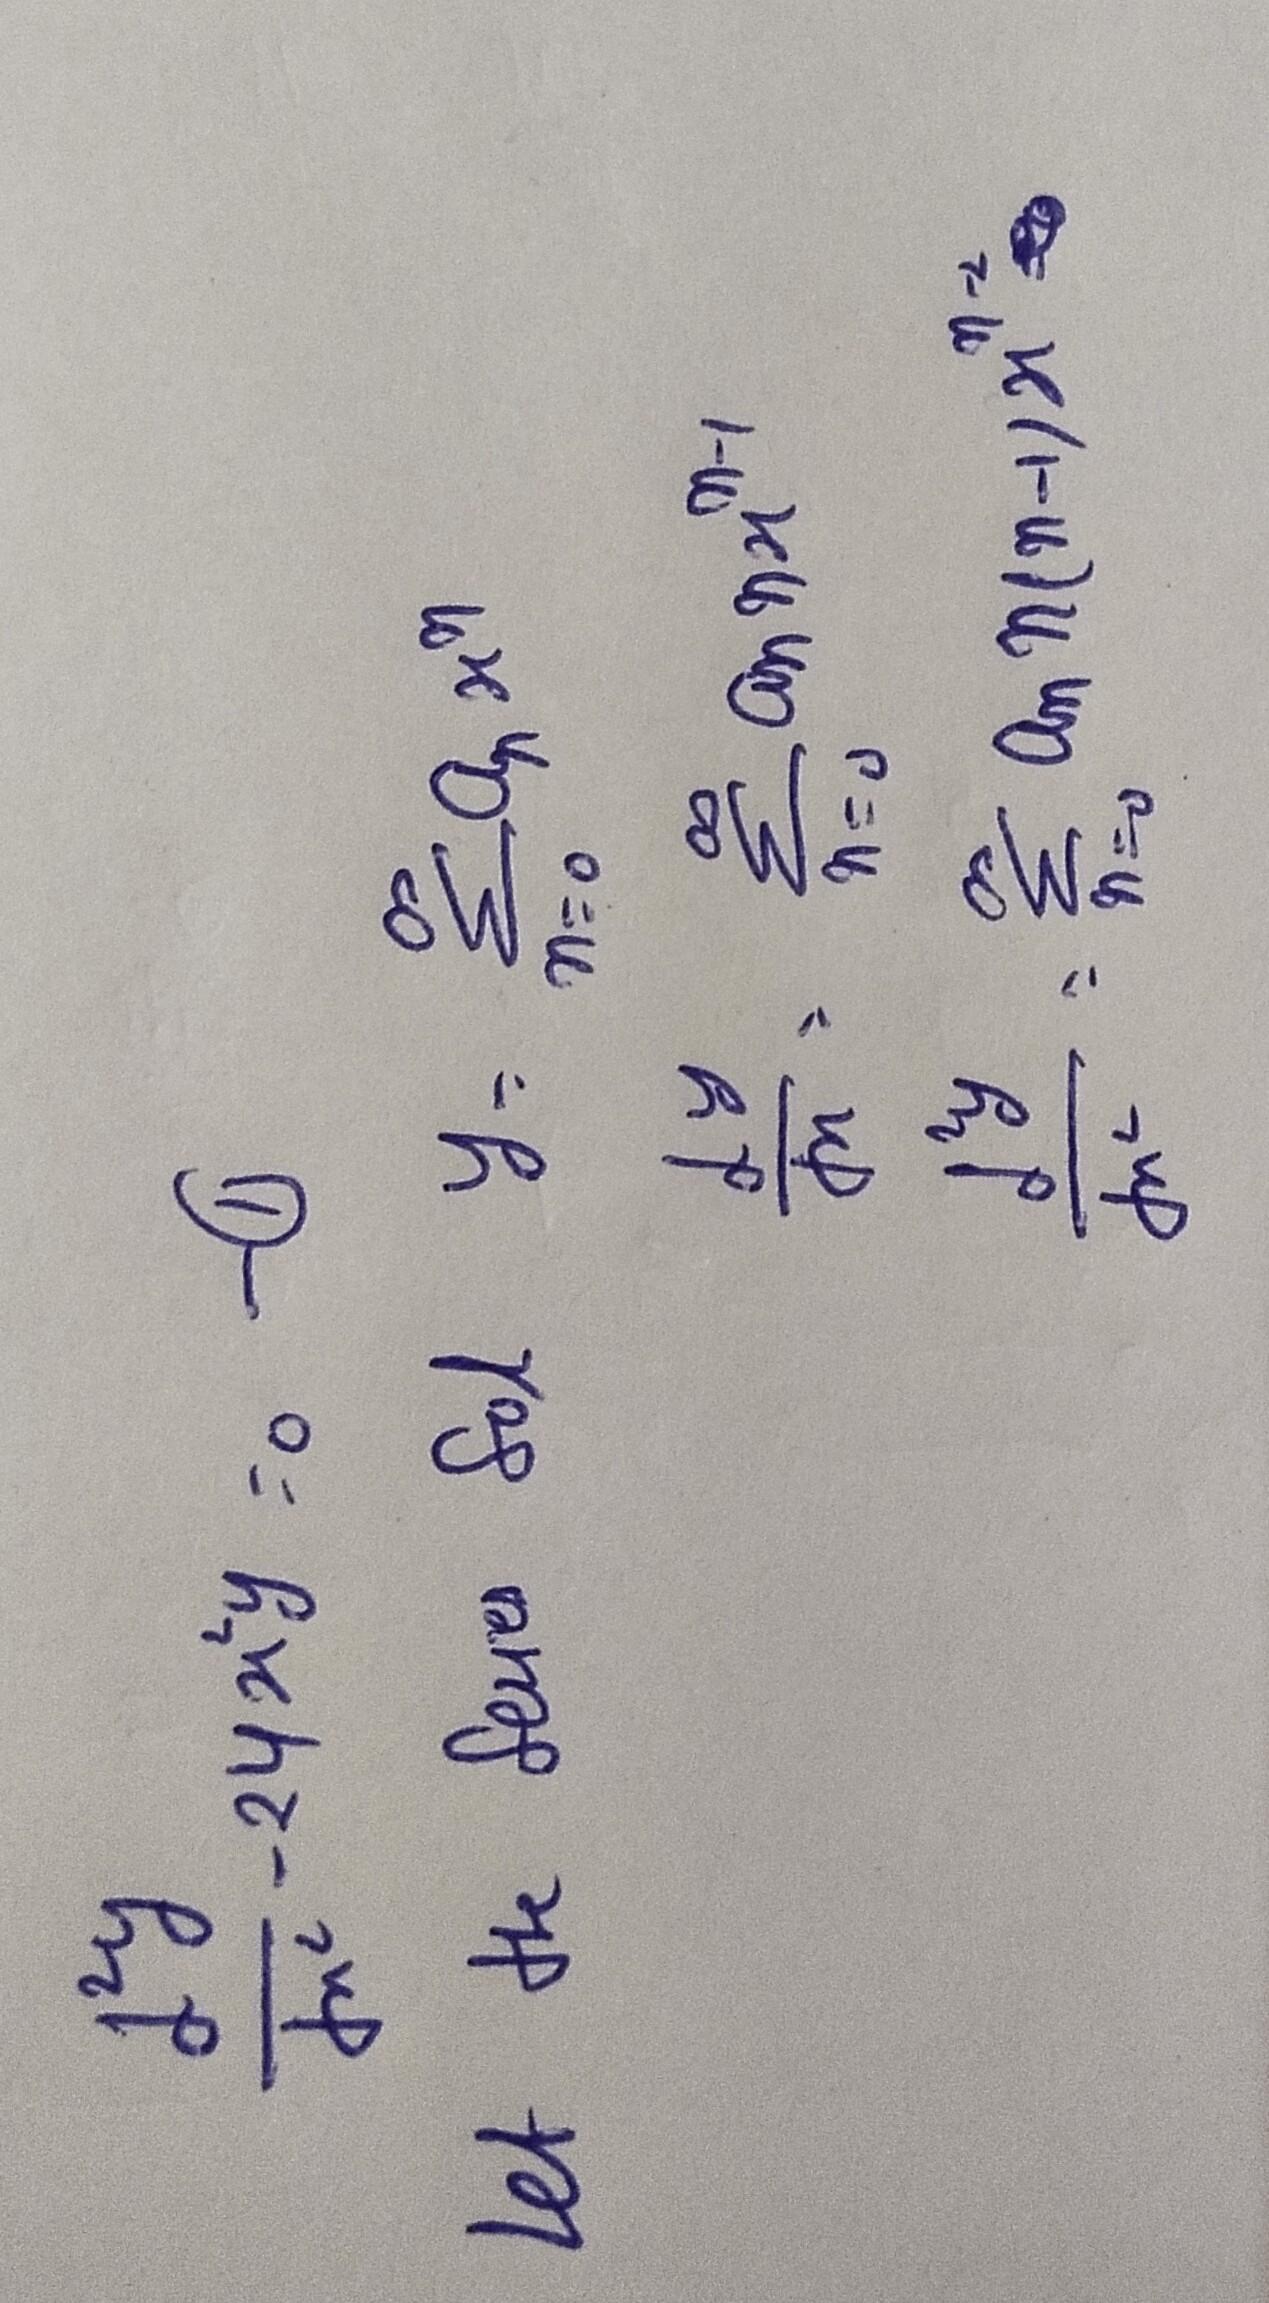 d²y/dx² - 24x²y = 0 — ①
Let the series sol y = ∞Σn=0 aₙxⁿ
dy/dx = ∞Σn=0 aₙ n xⁿ⁻¹
d²y/dx² = ∞Σn=0 aₙ n(n-1)xⁿ⁻²